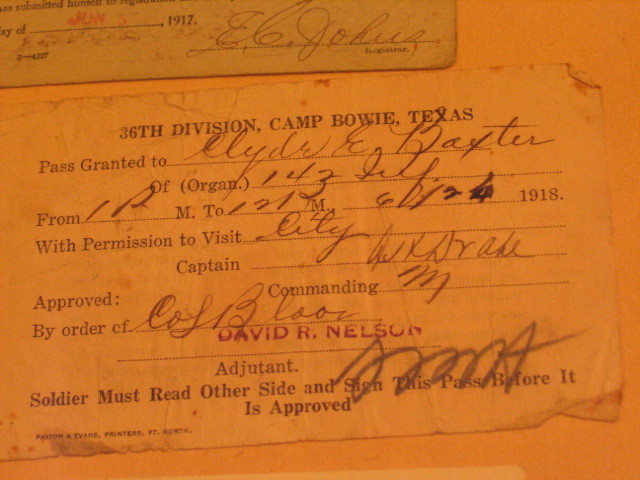 as submitted himself to registration
day of JUN 5, 1917.
E. C. Johns
2—4227 Registrar.)
36TH DIVISION, CAMP BOWIE, TEXAS
Pass Granted to Clyde E. Baxter
Of (Organ.) 142 Inf
From 1 P M. To 12 P M. 1918.
With Permission to Visit City
Captain Drake
Commanding M
Approved:
By order of Col Bloor
DAVID R. NELSON
Adjutant.
Soldier Must Read Other Side and Sign This Pass Before It
Is Approved
PAXTON & EVANS, PRINTERS, FT. WORTH.